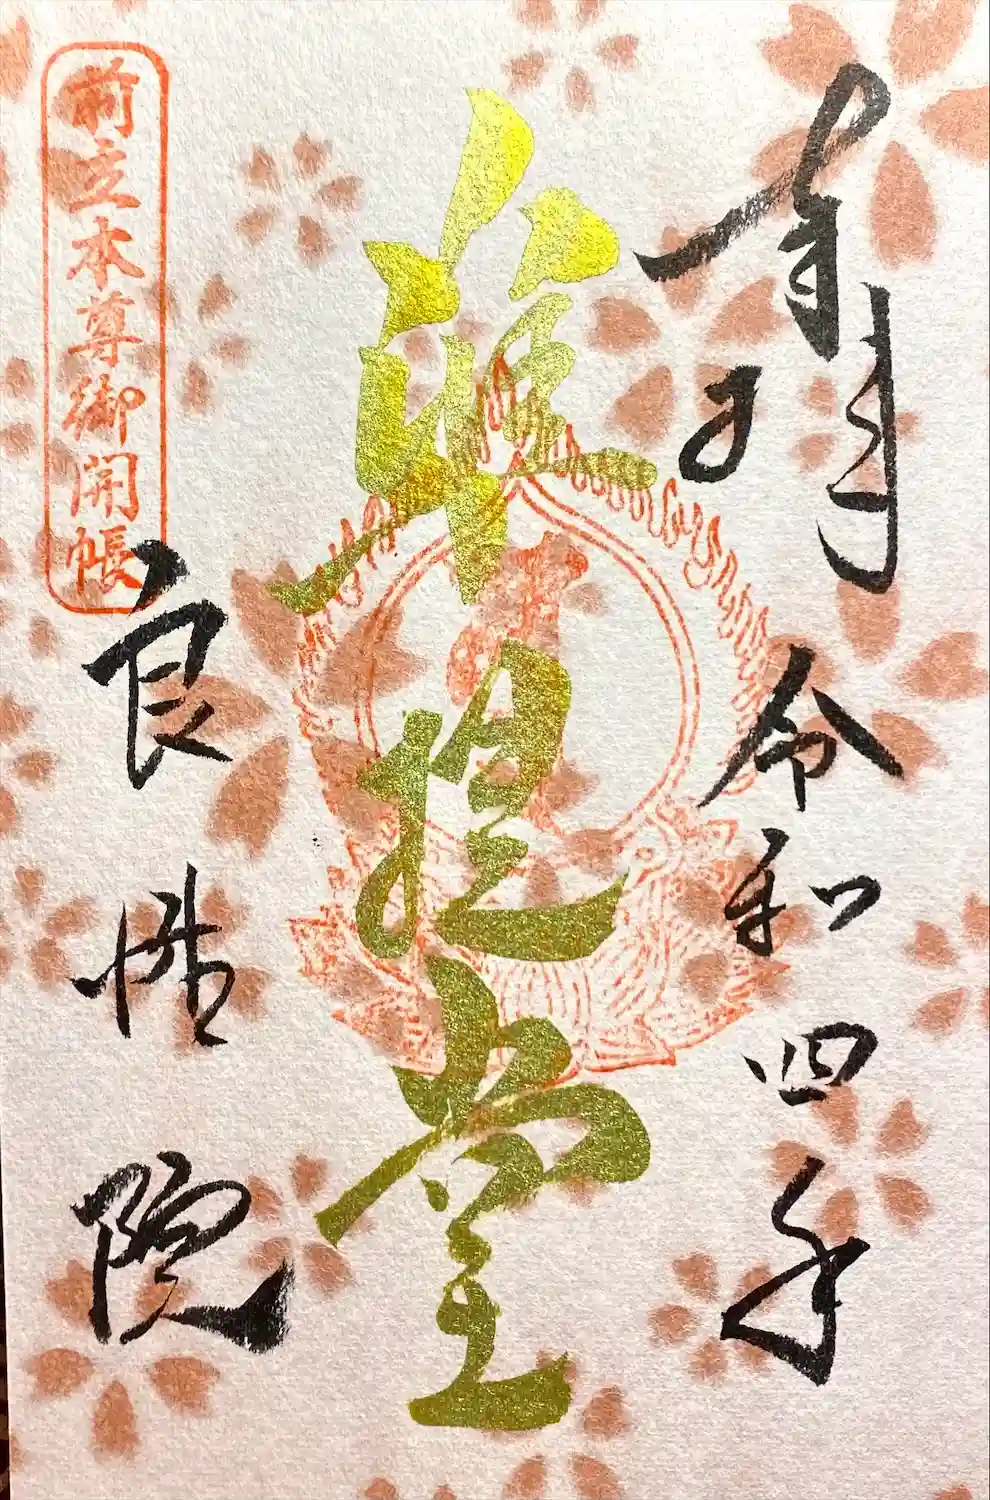 奉拝 令和四年
準提堂
前立本尊御開帳
良性院